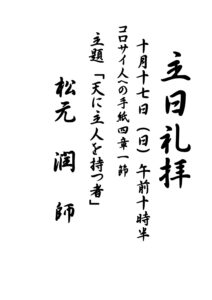 主日礼拝
十月十七日（日）午前十時半
コロサイ人への手紙四章一節
主題「天に主人を持つ者」
松元　潤　師